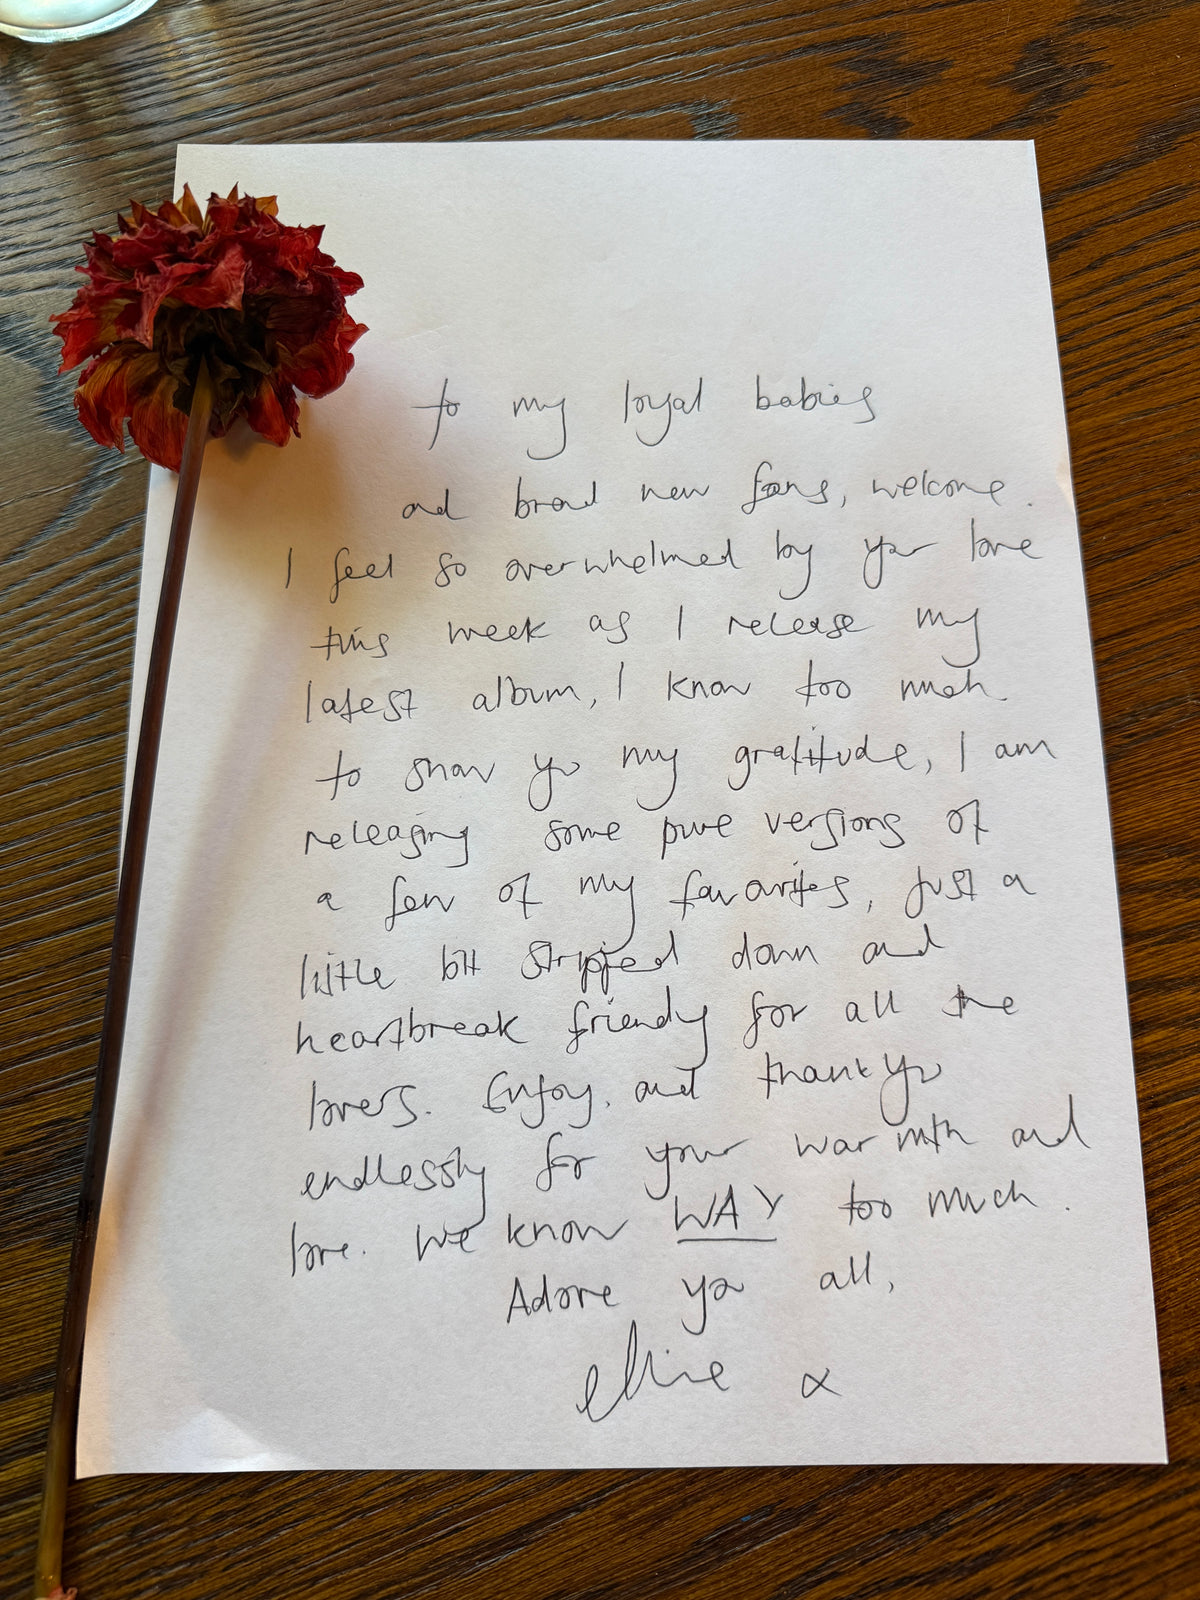 to my loyal babies
and brand new fans, welcome.
I feel so overwhelmed by your love
this week as I release my
latest album, I know too much.
to show you my gratitude, I am
releasing some pure versions of
a few of my favorites, just a
little bit stripped down and
heartbreak friendly for all the
lovers. Enjoy, and thank you
endlessly for your warmth and
love. We know WAY too much.
Adore you all,
ellise x